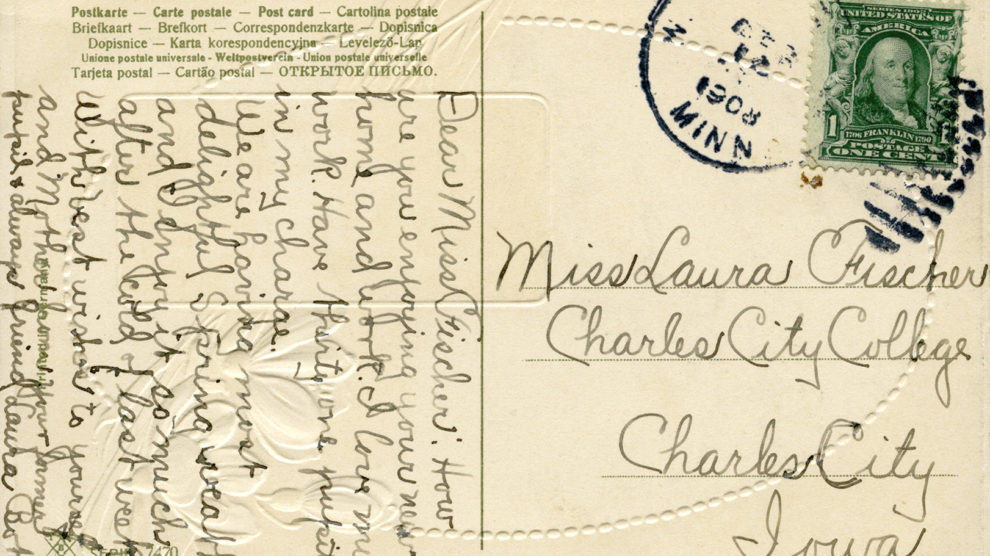 Postkarte — Carte postale — Post card — Cartolina postale
Briefkaart — Brefkort — Correspondenzkarte — Dopisnica
Dopisnice — Karta korespondencyjna — Levelező-Lap
Unione postale universale - Weltpostverein - Union postale universelle
Tarjeta postal — Cartão postal — ОТКРЫТОЕ ПИСЬМО.
Dear Miss Fischer: How
are you enjoying your new
home and work. I love my
work. Have thirty one
in my charge.
We are having most
delightful Spring
and I enjoy it so much
after the cold of last
With best wishes to
and Mother
pupil & always friend Laura
MINN
1908
SERIES 1902
UNITED STATES OF
AMERICA
1706 FRANKLIN 1790
1
POSTAGE
ONE CENT
Miss Laura Fischer
Charles City College
Charles City
Iowa